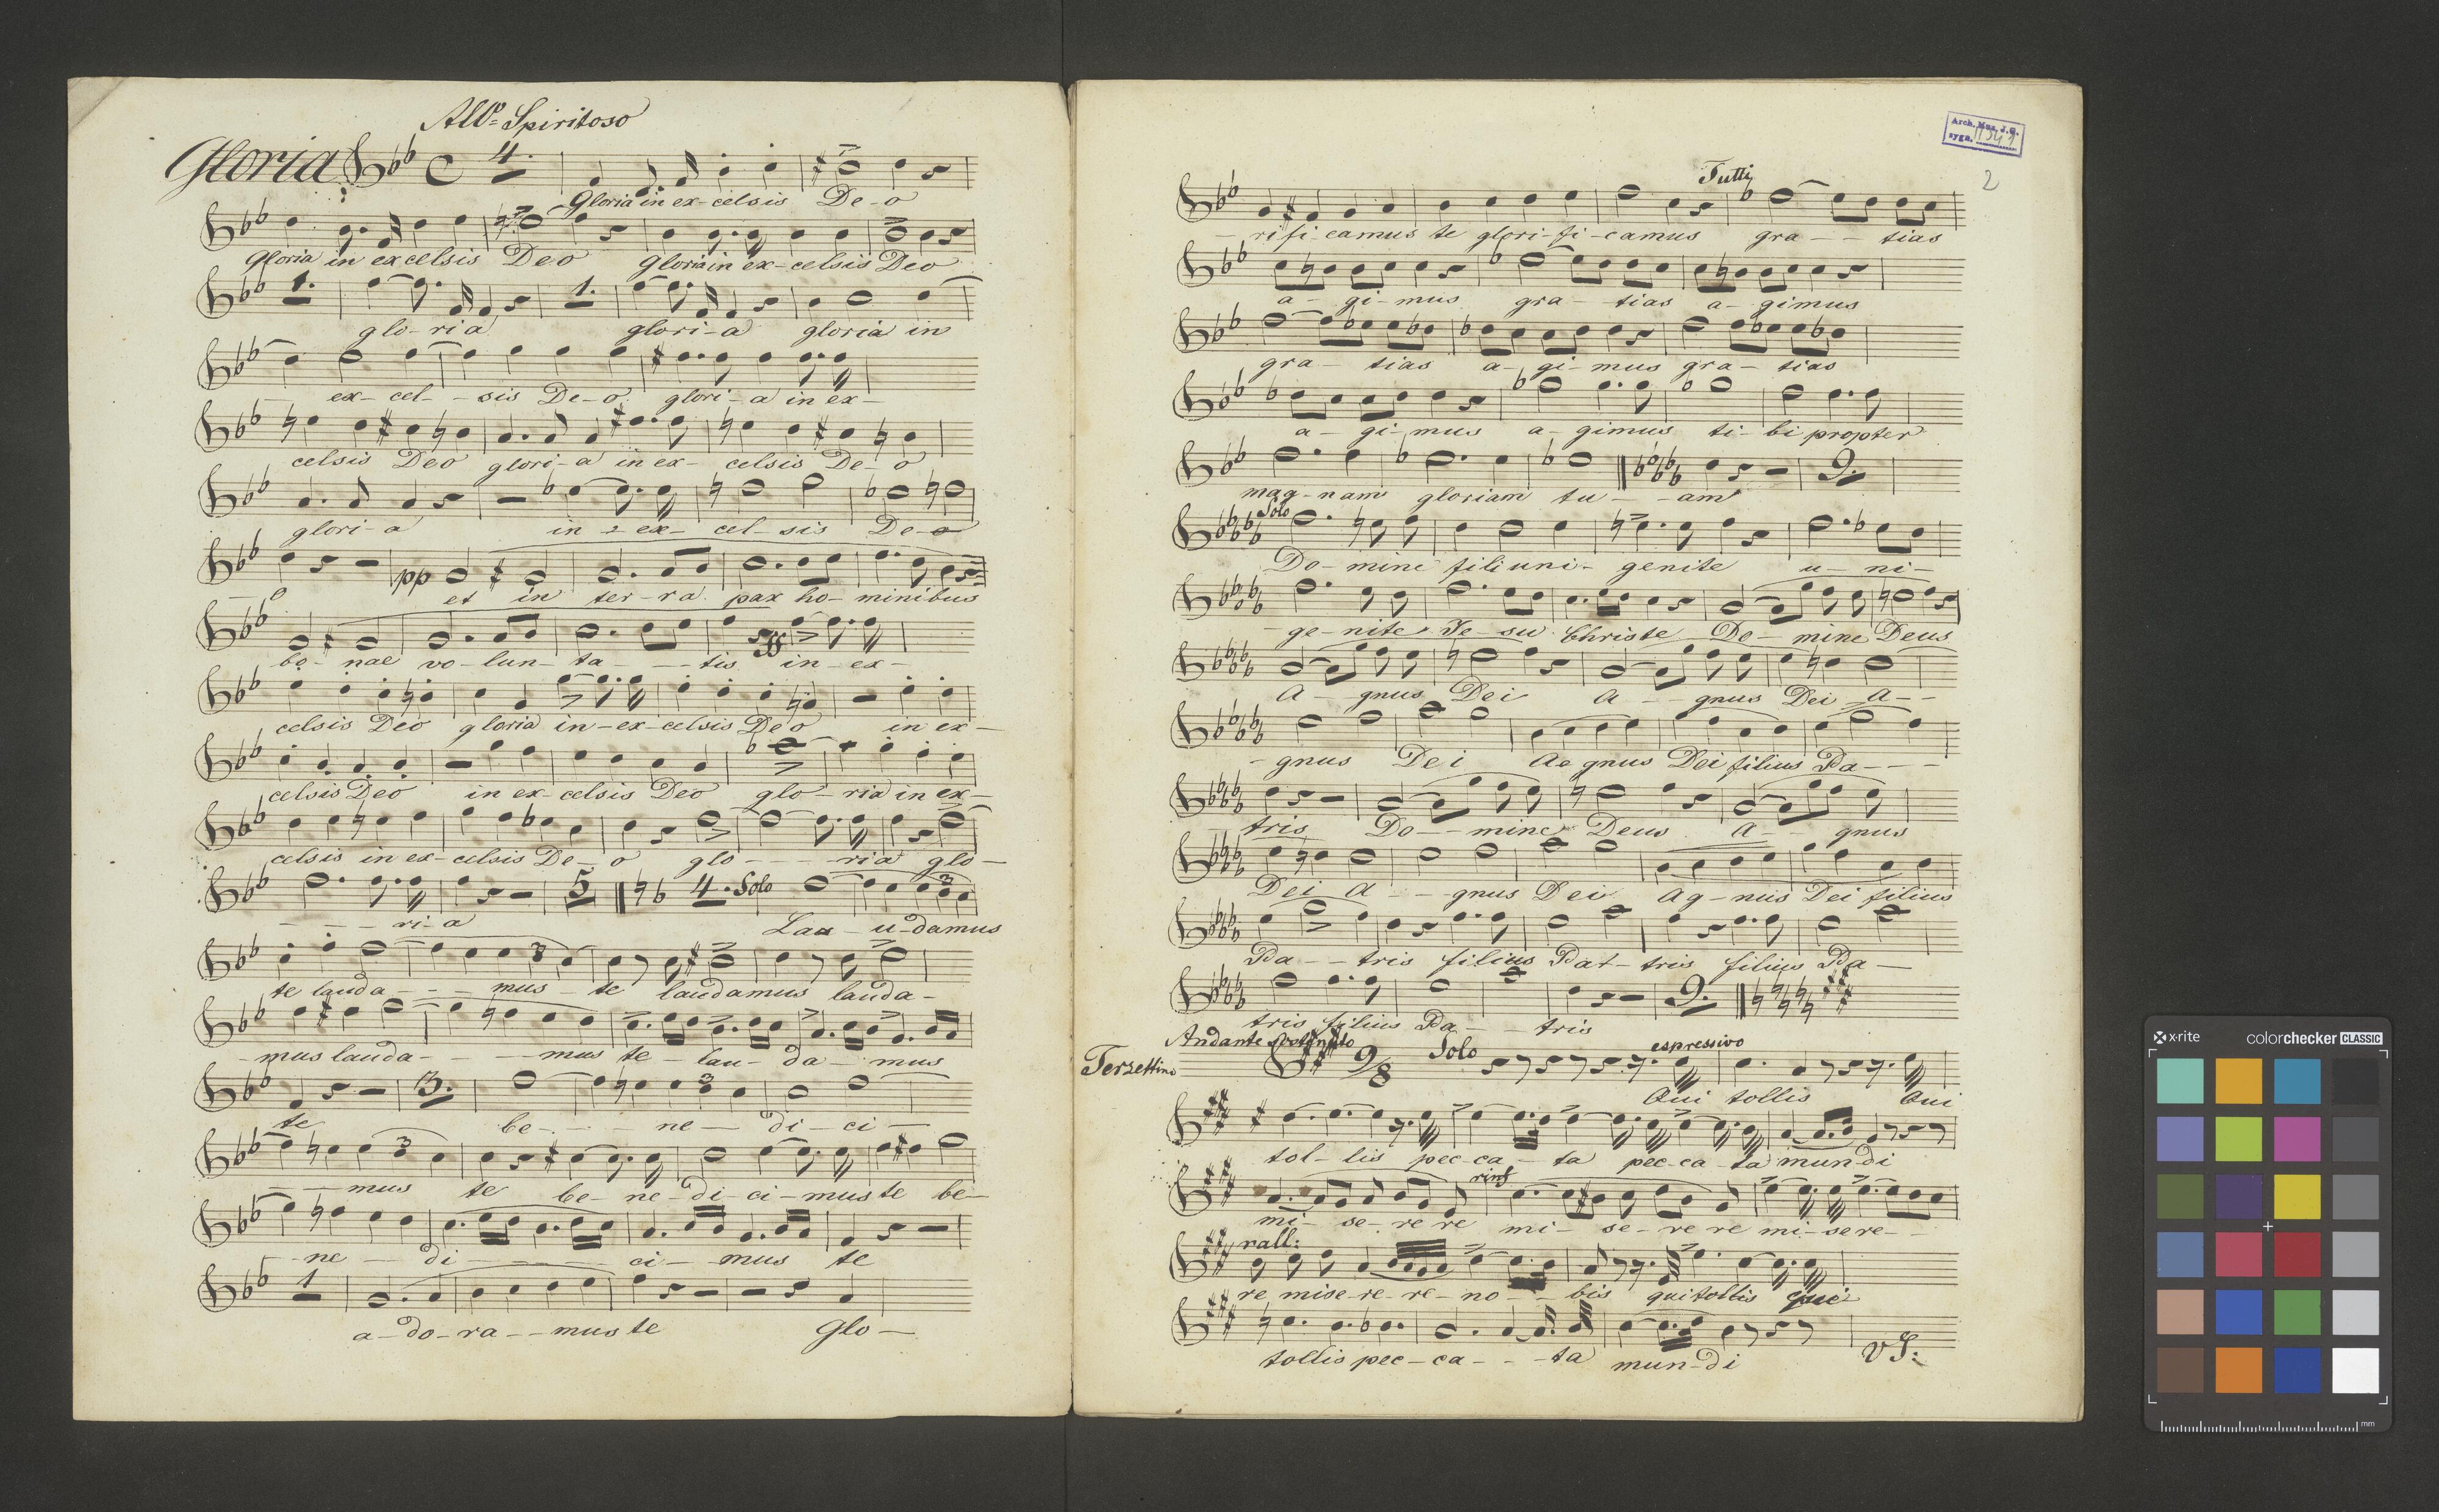 Allo= Spiritoso
Gloria
4.
Gloria in ex-celsis De-o
Gloria in excelsis Deo Gloria in ex-celsis Deo
1. 1.
glo-ria glori-a gloria in
ex-cel--sis De-o glori-a in ex-
celsis Deo glori-a in ex- celsis De-o
glori-a in - ex- cel-sis De-o
pp
et in ter-ra pax ho-minibus
bo-nae vo-lun-ta---tis in-ex-
celsis Deo gloria in-ex-celsis Deo in ex-
celsis Deo in ex-celsis Deo glo-ria in ex-
celsis in ex-celsis De-o glo---ria glo-
5 4. Solo 3
---ri-a Lau-u-damus
3
te lauda---mus-te laudamus lauda-
-mus lauda----mus te-lau-da-mus
3. 3
te be---ne-di-ci-
3
---mus te be-ne-di-ci-mus te be-
--ne-di-----ci--mus te
1
a-do-ra--mus te Glo-
Arch. Muz. J.G.
sygn.
2
Tutti
-rifi-camus te glori-fi-camus gra--tias
a-gi-mus gra-tias a-gimus
gra-tias a-gi-mus gra-tias
a-gi-mus a-gimus ti-bi propter
2.
mag-nam gloriam tu--am
Solo
Do-mine fili uni-genite u-ni-
-ge-nite Je-su Christe Do-mine Deus
A-gnus Dei A--gnus Dei A--
-gnus Dei Aa gnus Dei filius Pa---
tris Do--mine Deus A--gnus
Dei A---gnus Dei Ag-nus Dei filius
Pa--tris filius Pat-tris filius Pa-
2.
tris filius Pa---tris
Andante Sostenuto
Terzettino 9/8 Solo espressivo
Qui tollis Qui
tol-lis pec-ca-ta pec-ca-ta mun-di
rinf
mi-se-re re mi-se-re re mi-sere-
rall:
re mise-re-re-no--bis qui tollis qui
tollis pec-ca---ta mun-di
VS:
x-rite colorchecker CLASSIC
mm